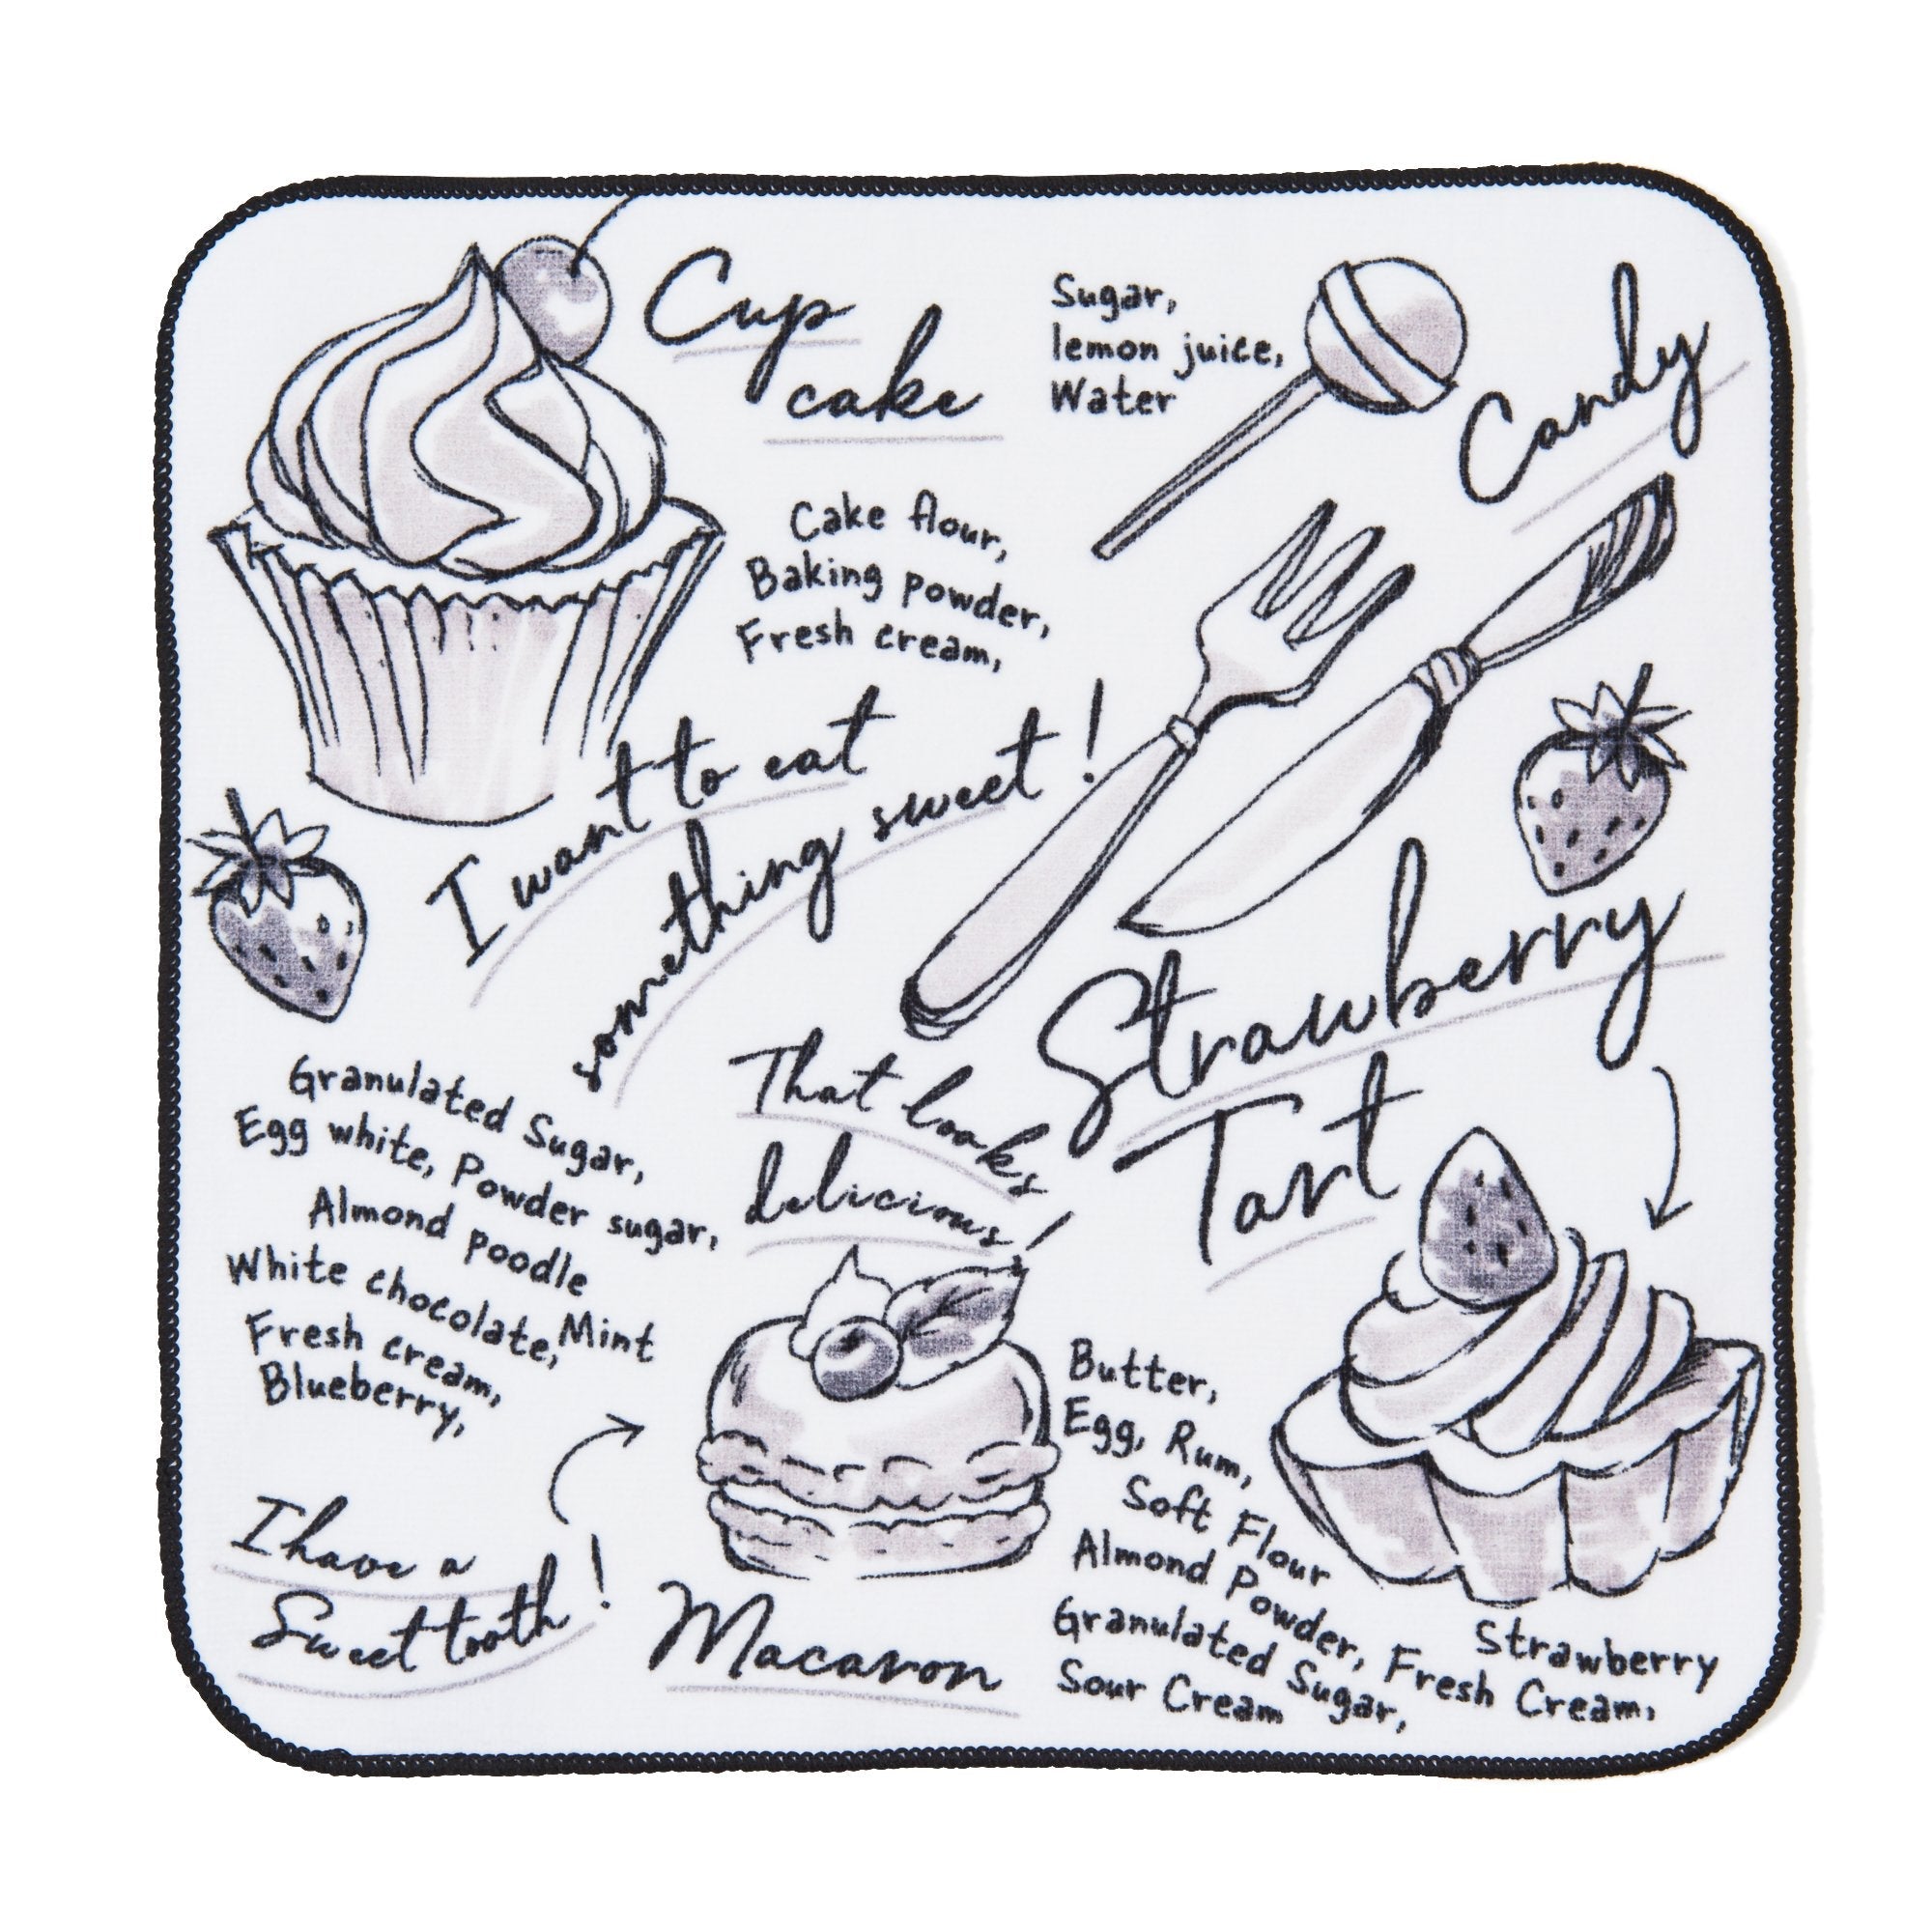 Cup
cake
Sugar,
lemon juice,
Water
Candy
Cake flour,
Baking powder,
Fresh cream,
I want to eat
something sweet!
Strawberry
Tart
That looks
delicious!
Granulated Sugar,
Egg white, Powder sugar,
Almond poodle
White chocolate, Mint
Fresh cream,
Blueberry,
I have a
Sweet tooth!
Macaron
Butter,
Egg, Rum,
Soft Flour
Almond Powder, Fresh Cream,
Granulated Sugar,
Sour Cream
Strawberry